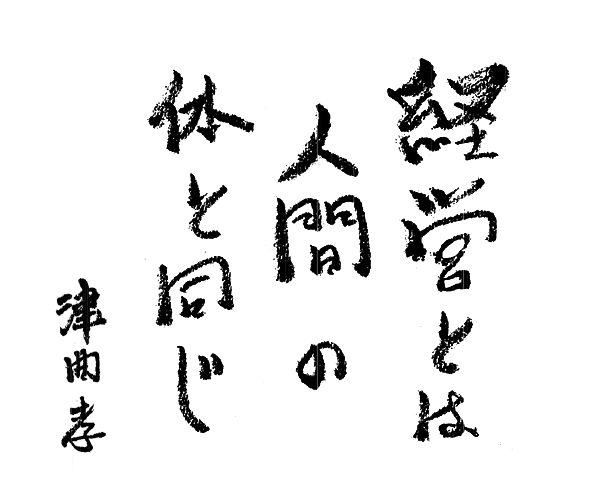 経営とは
人間の
体と同じ
津曲孝